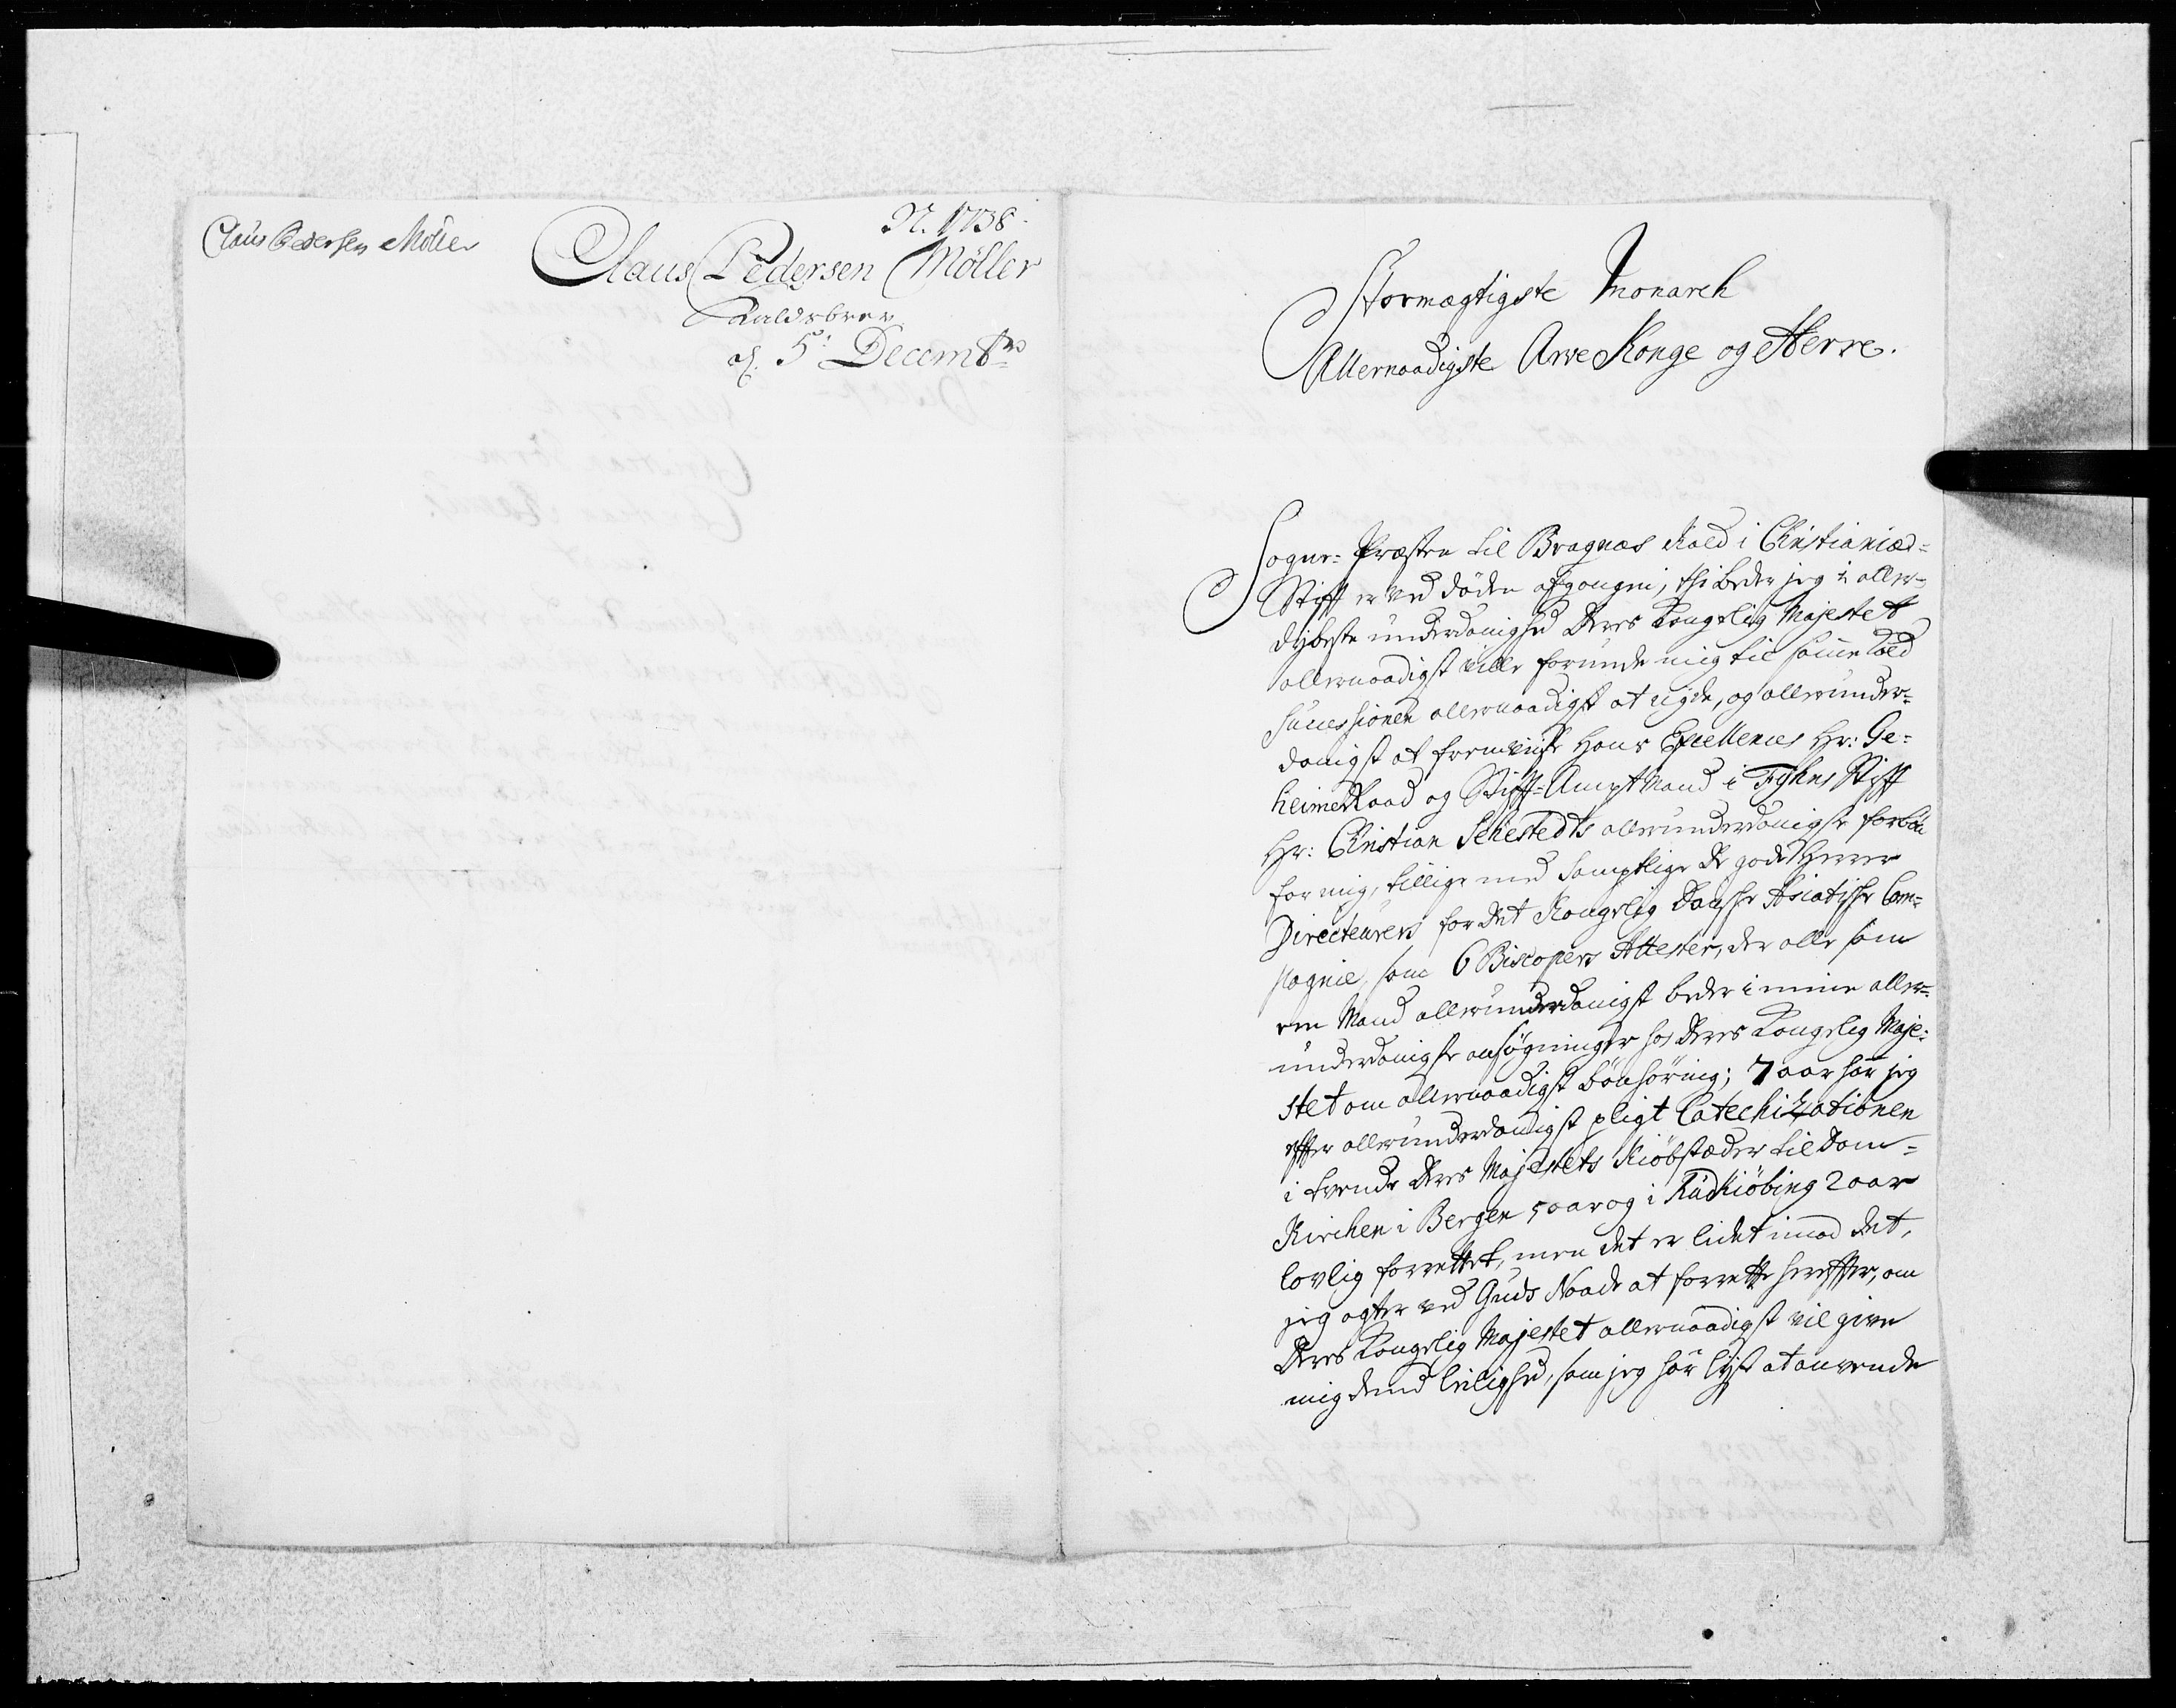 Claus Pedersen Møller
N. 1738.
Claus Pedersen Møller
Kaldsbrev
af. 5t. Decembr
Stormægtigste Monarch
Allernaadigste Arve Konge og Herre.
Sogne-Præsten til Bragnæs Kald i Christianiæ-
Stift er ved Døden afgangen, thi beder jeg i aller-
dybeste underdanighed Deres Kongelig Majestet
allernaadigst wille forunde mig til samme Kald
successionen allernaadigst at nyde, og allerunder-
danigst at fremviise Hans Excellences Hr: Ge-
heimeRaad og Stift-AmptMand i Fyhns Stift
Hr: Christian Sehestedts allerunderdanigste forbøn
for mig, tillige med samptlige de gode Herrer
Directeurers for det Kongelig Danske Asiatiske Com-
pagnie, som 6 Biscopers Attester, der alle som
een Mand allerunderdanigst beder i mine aller-
underdanigste ansøgninger hos Deres Kongelig Maje-
stet om allernaadigst bønhøring; 7 aar har jeg
efter allerunderdanigst pligt Catechizationen
i tvende Deres Majestets Kiøbstæder til Dom-
Kirchen i Bergen 5 aar og i Rudkiøbing 2 aar
lovlig forrettet, men det er lidet imod det,
jeg agter ved Guds Naade at forrette herefter, om
Deres Kongelig Majestet allernaadigst vil give
mig dend leilighed, som jeg har lyst at anvende